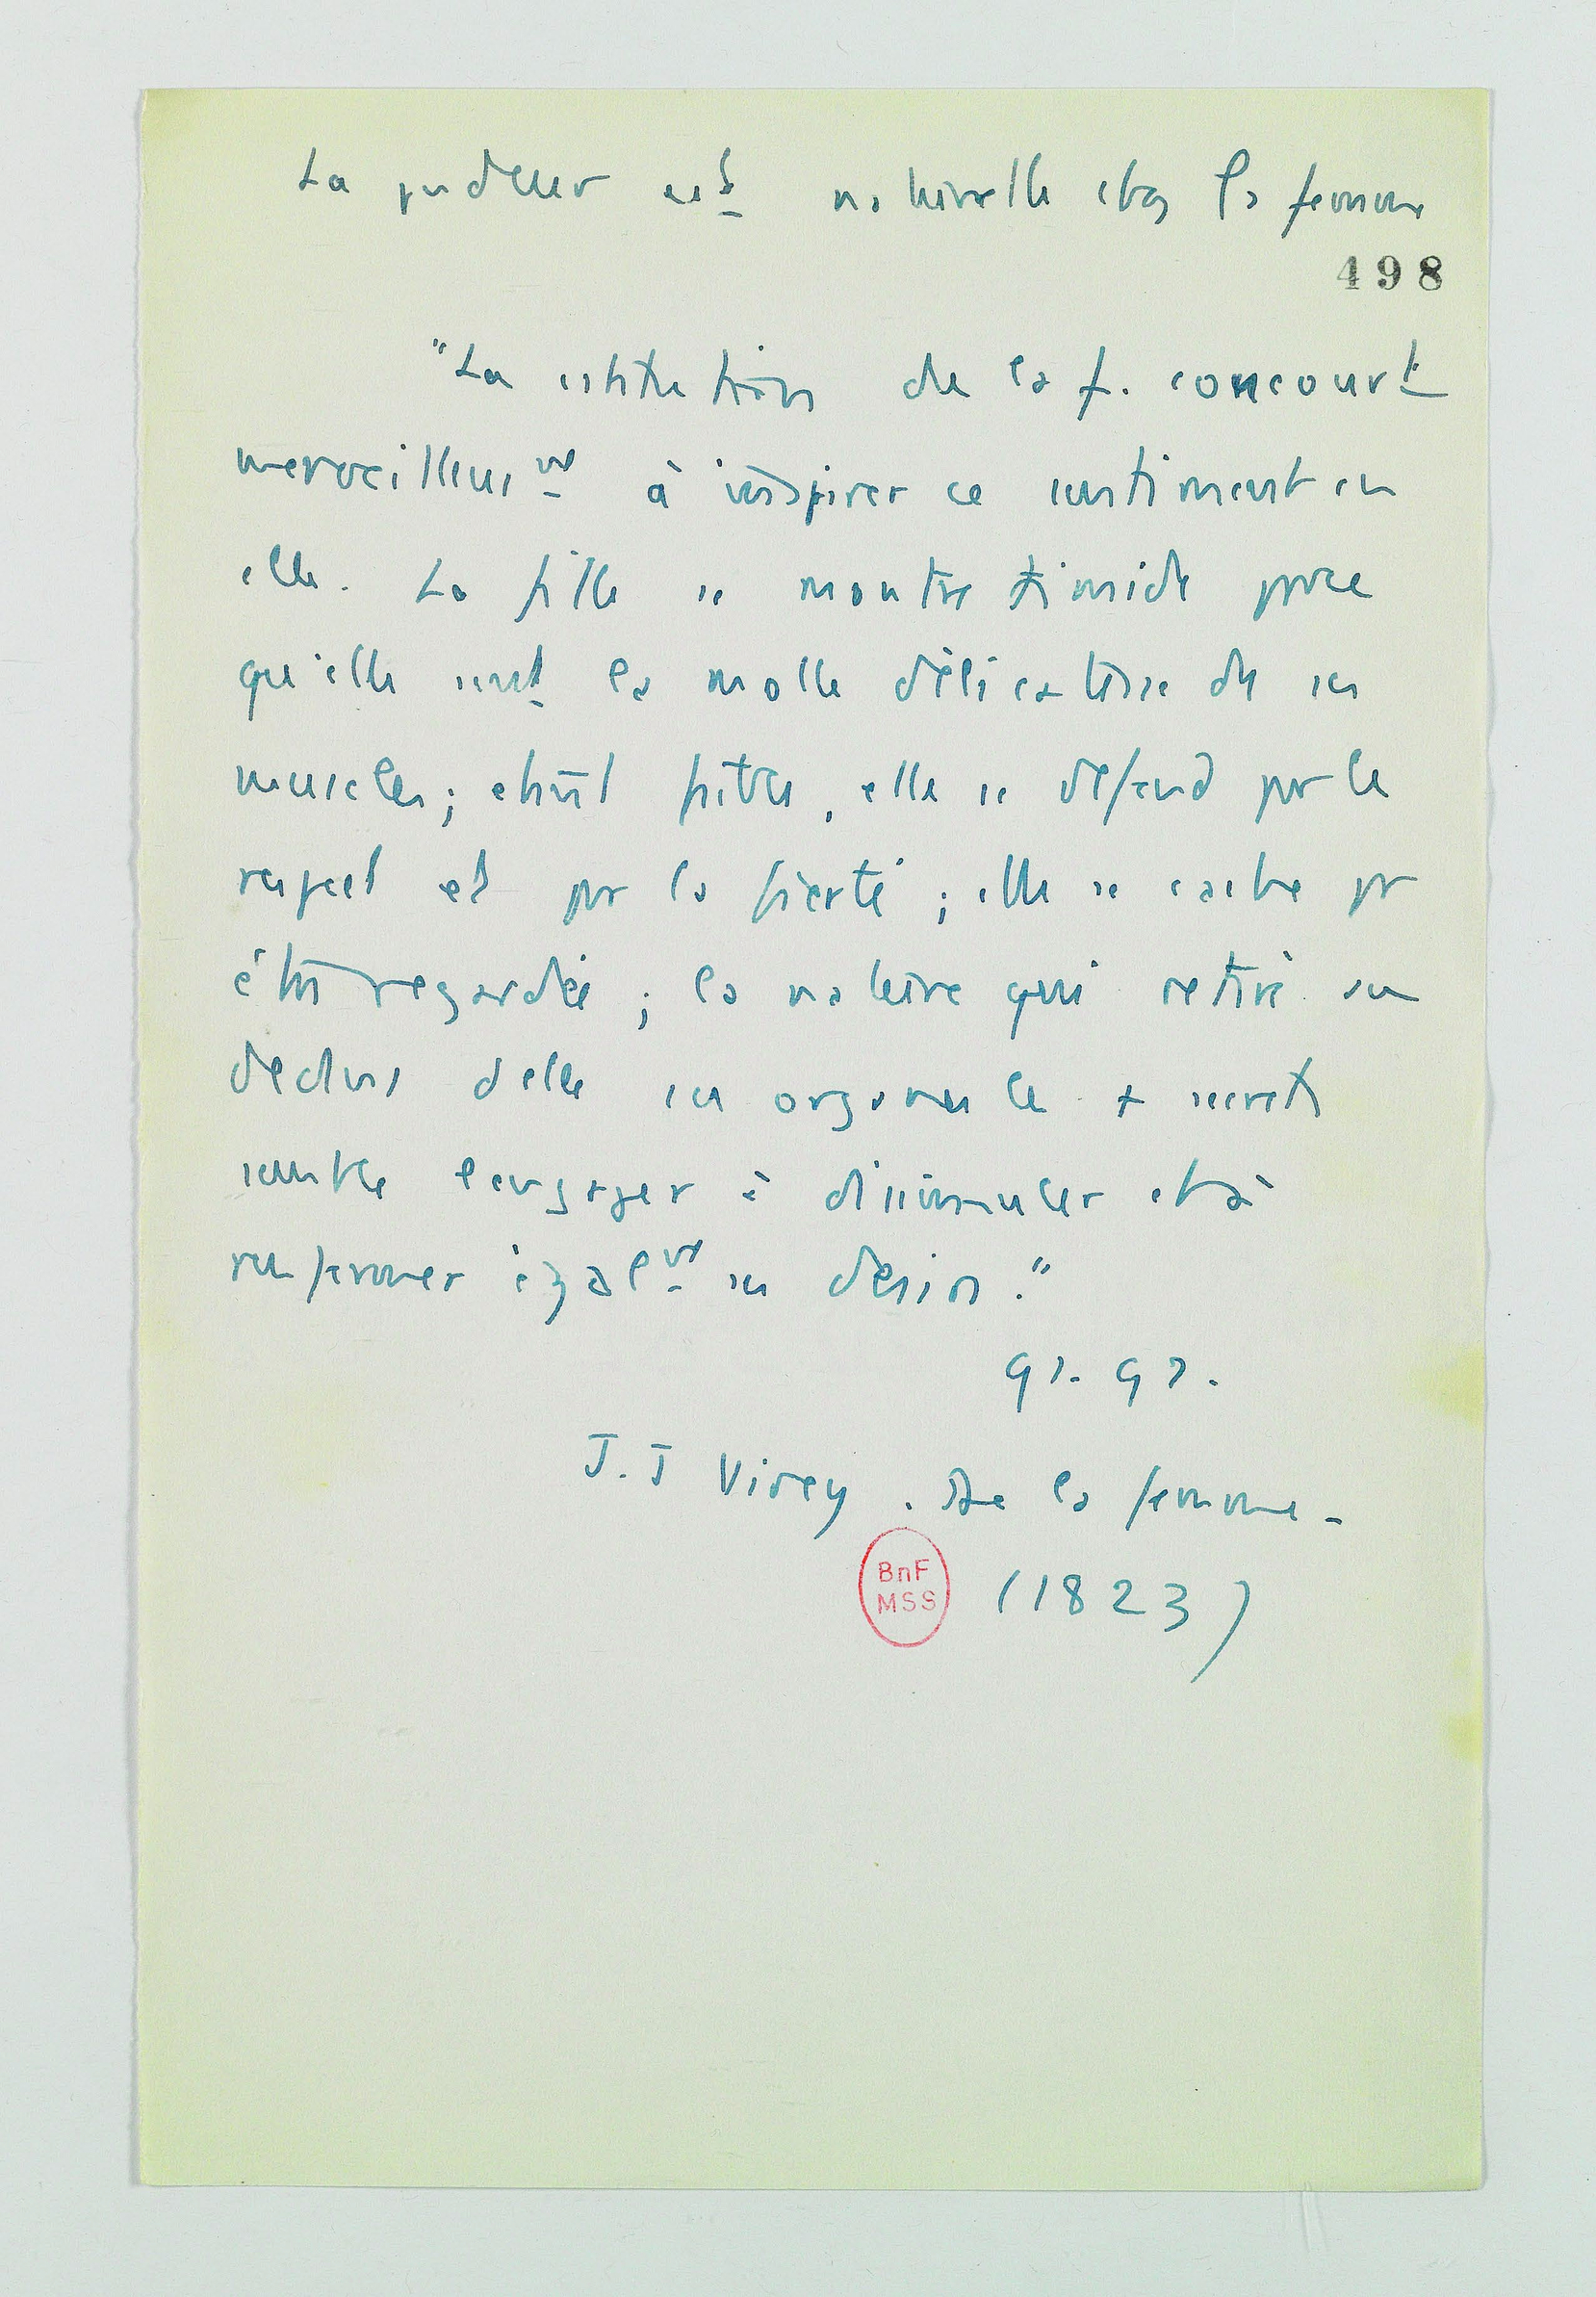 La pudeur est naturelle chez la femme
498
"La cstitution de la f. concourt
merveilleusmt à inspirer ce sentiment en
elle. La fille se montre timide parce
qu'elle sent la molle délicatesse de ses
muscles ; étant faible, elle se défend par le
respect et par la fierté ; elle se cache pr
être regardée ; la nature qui retire au
dedans d'elle ses organes les + secrets
semble l'engager à dissimuler et à
renfermer égalmt ses désirs."
J.J Virey. De la femme -
BnF
MSS
(1823)